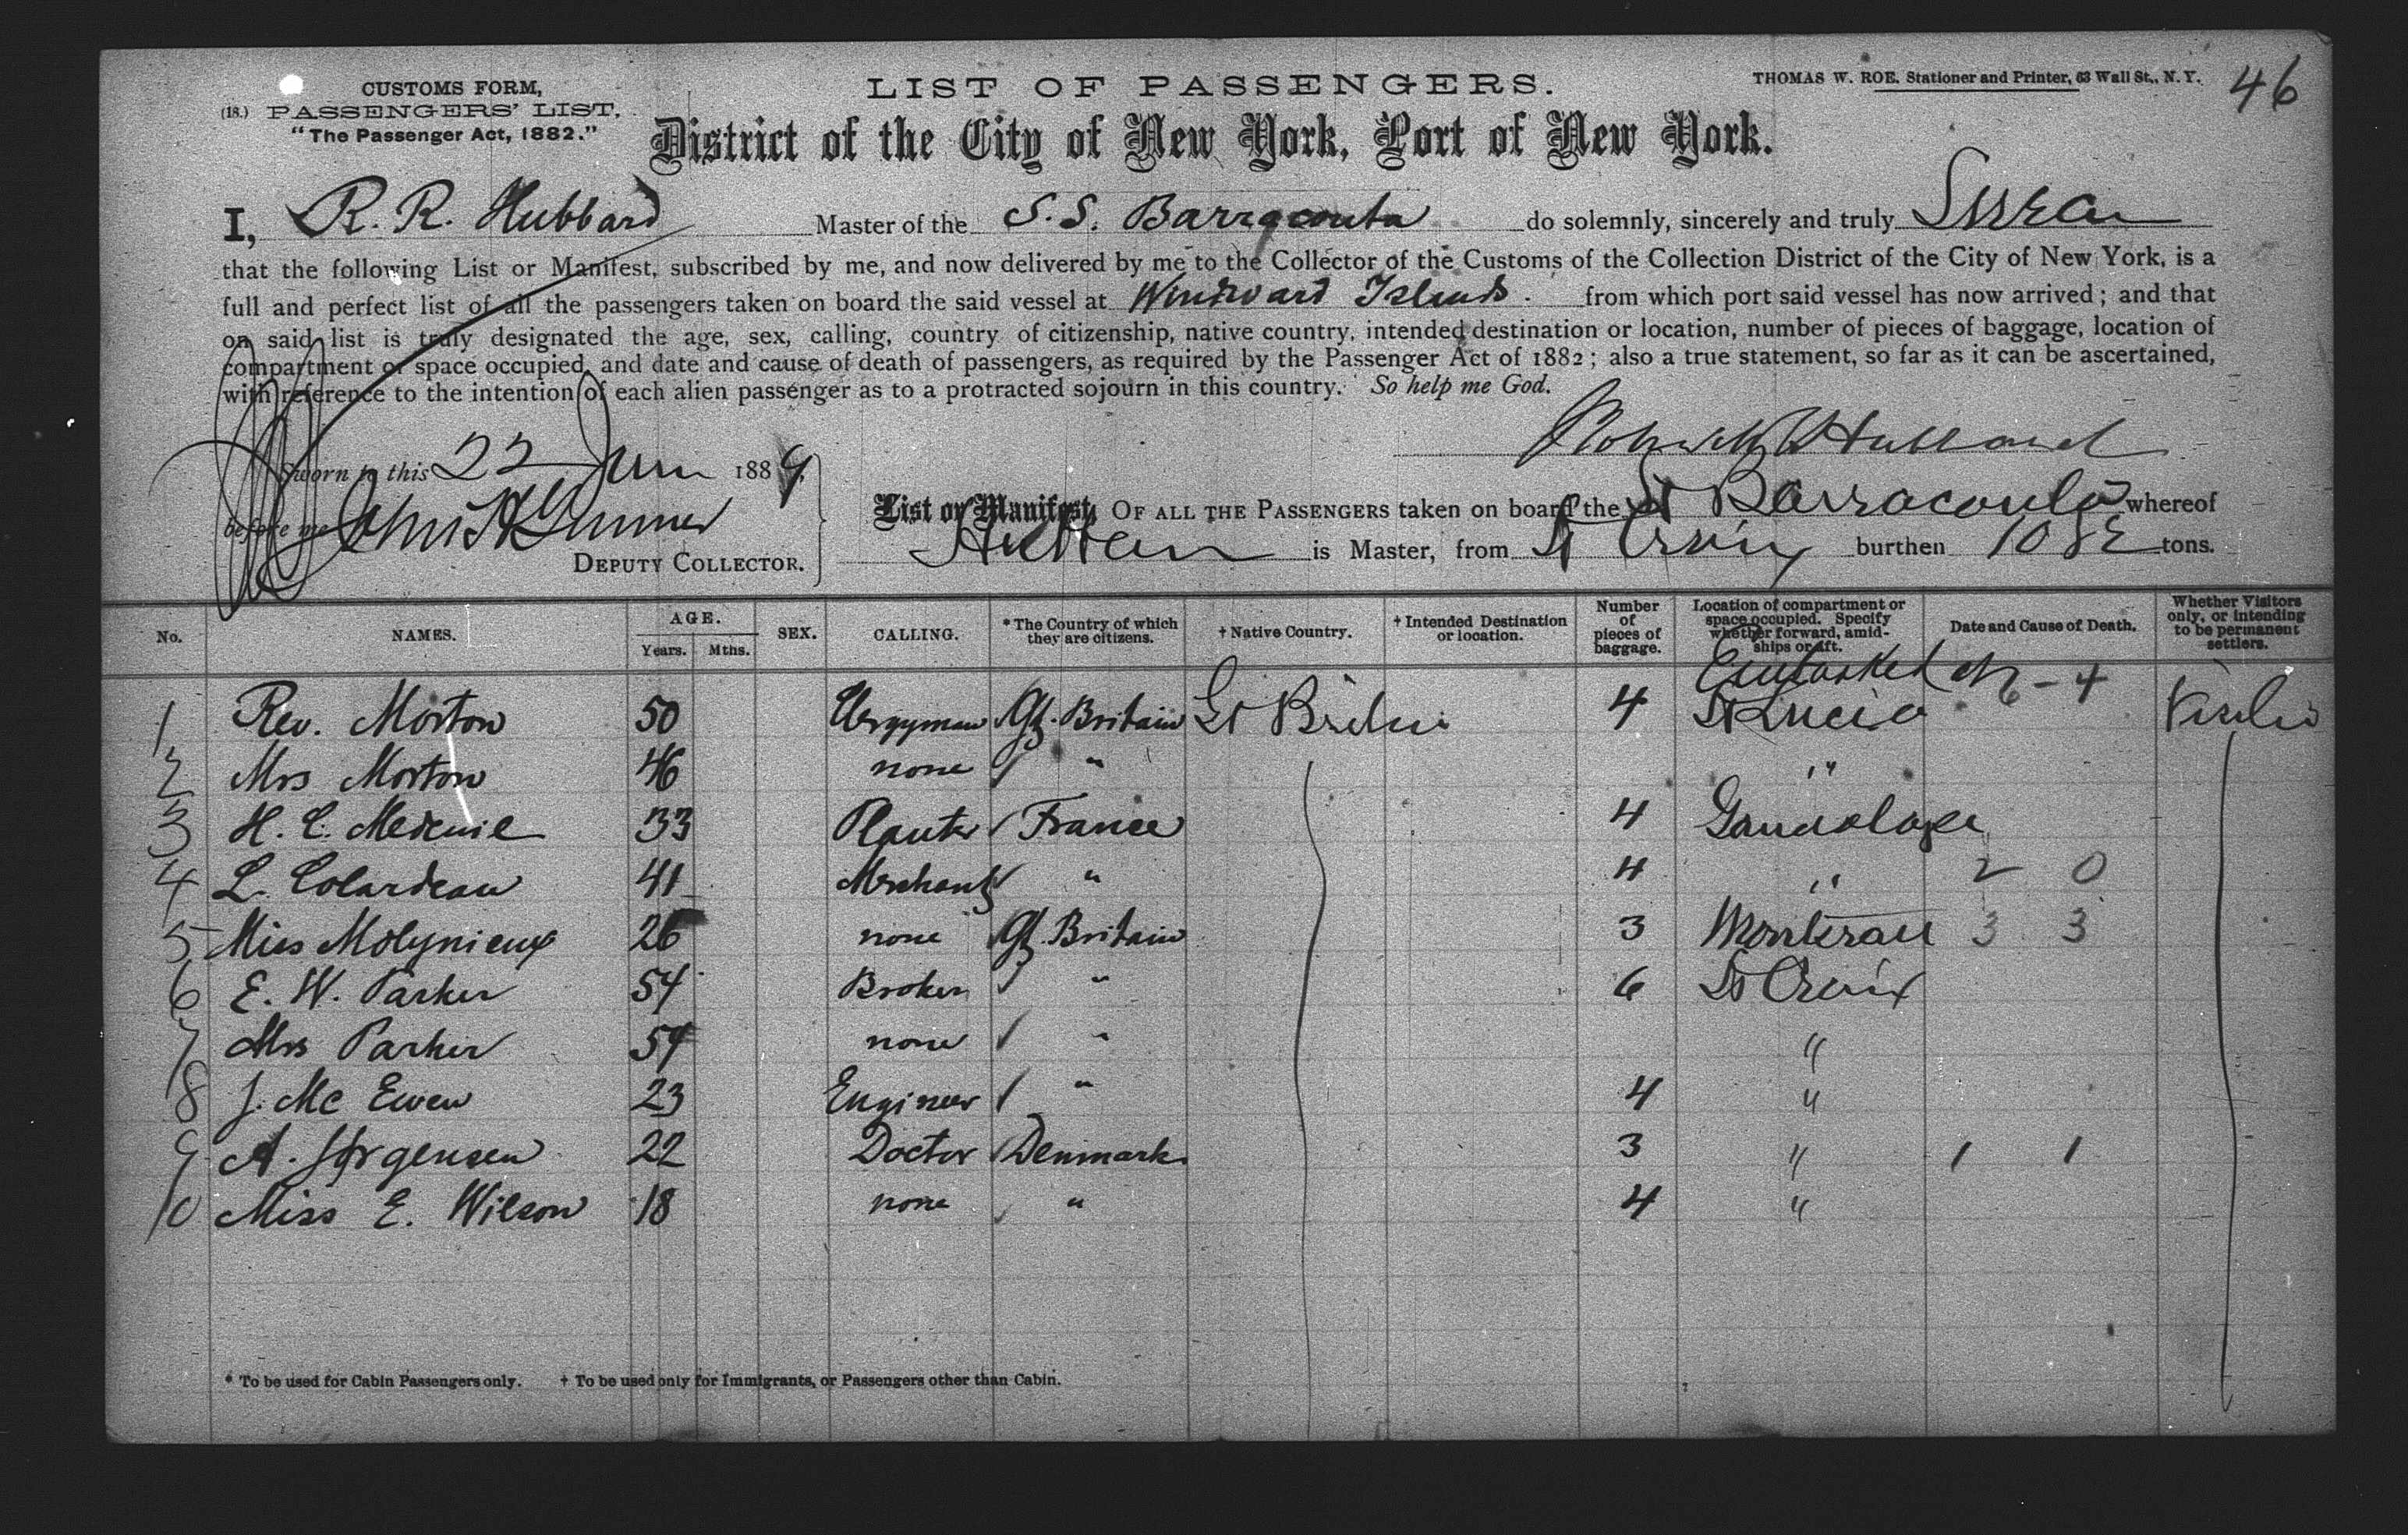 CUSTOMS FORM,
(18.) PASSENGERS' LIST,
"The Passenger Act, 1882."
LIST OF PASSENGERS.
THOMAS W. ROE, Stationer and Printer, 63 Wall St., N. Y.
46
District of the City of New York, Port of New York.
I, R. R. Hubbard Master of the S. S. Barracouta do solemnly, sincerely and truly Swear
that the following List or Manifest, subscribed by me, and now delivered by me to the Collector of the Customs of the Collection District of the City of New York, is a
full and perfect list of all the passengers taken on board the said vessel at Windward Islands. from which port said vessel has now arrived; and that
on said list is truly designated the age, sex, calling, country of citizenship, native country, intended destination or location, number of pieces of baggage, location of
compartment or space occupied, and date and cause of death of passengers, as required by the Passenger Act of 1882; also a true statement, so far as it can be ascertained,
with reference to the intention of each alien passenger as to a protracted sojourn in this country. So help me God.
Hubbard
Sworn to this 22 June 1889
before me
DEPUTY COLLECTOR.
List or Manifest, OF ALL THE PASSENGERS taken on board the SS Barracouta whereof
is Master, from St Croix burthen tons.
No. NAMES. AGE. Years. Mths. SEX. CALLING. * The Country of which they are citizens. † Native Country. † Intended Destination or location. Number of pieces of baggage. Location of compartment or space occupied. Specify whether forward, amidships or aft. Date and Cause of Death. Whether Visitors only, or intending to be permanent settlers.
Embarked at 6 - 4
1 Rev. Morton 50 Clergyman Gt. Britain Gt Britain 4 St Lucia
2 Mrs Morton 46 none " "
3 H. C. 33 Planter France 4 Guadaloupe
4 L. Colardeau 41 Merchant " 4 " 2 0
5 Miss Molynieux 26 none Gt. Britain 3 Montserat 3 3
6 E. W. Parker 54 Broker " 6 St Croix
7 Mrs Parker 54 none " "
8 J. Mc Ewen 23 Engineer " 4 "
9 A. Jørgensen 22 Doctor Denmark 3 " 1 1
10 Miss E. Wilson 18 none " 4 "
* To be used for Cabin Passengers only. † To be used only for Immigrants, or Passengers other than Cabin.